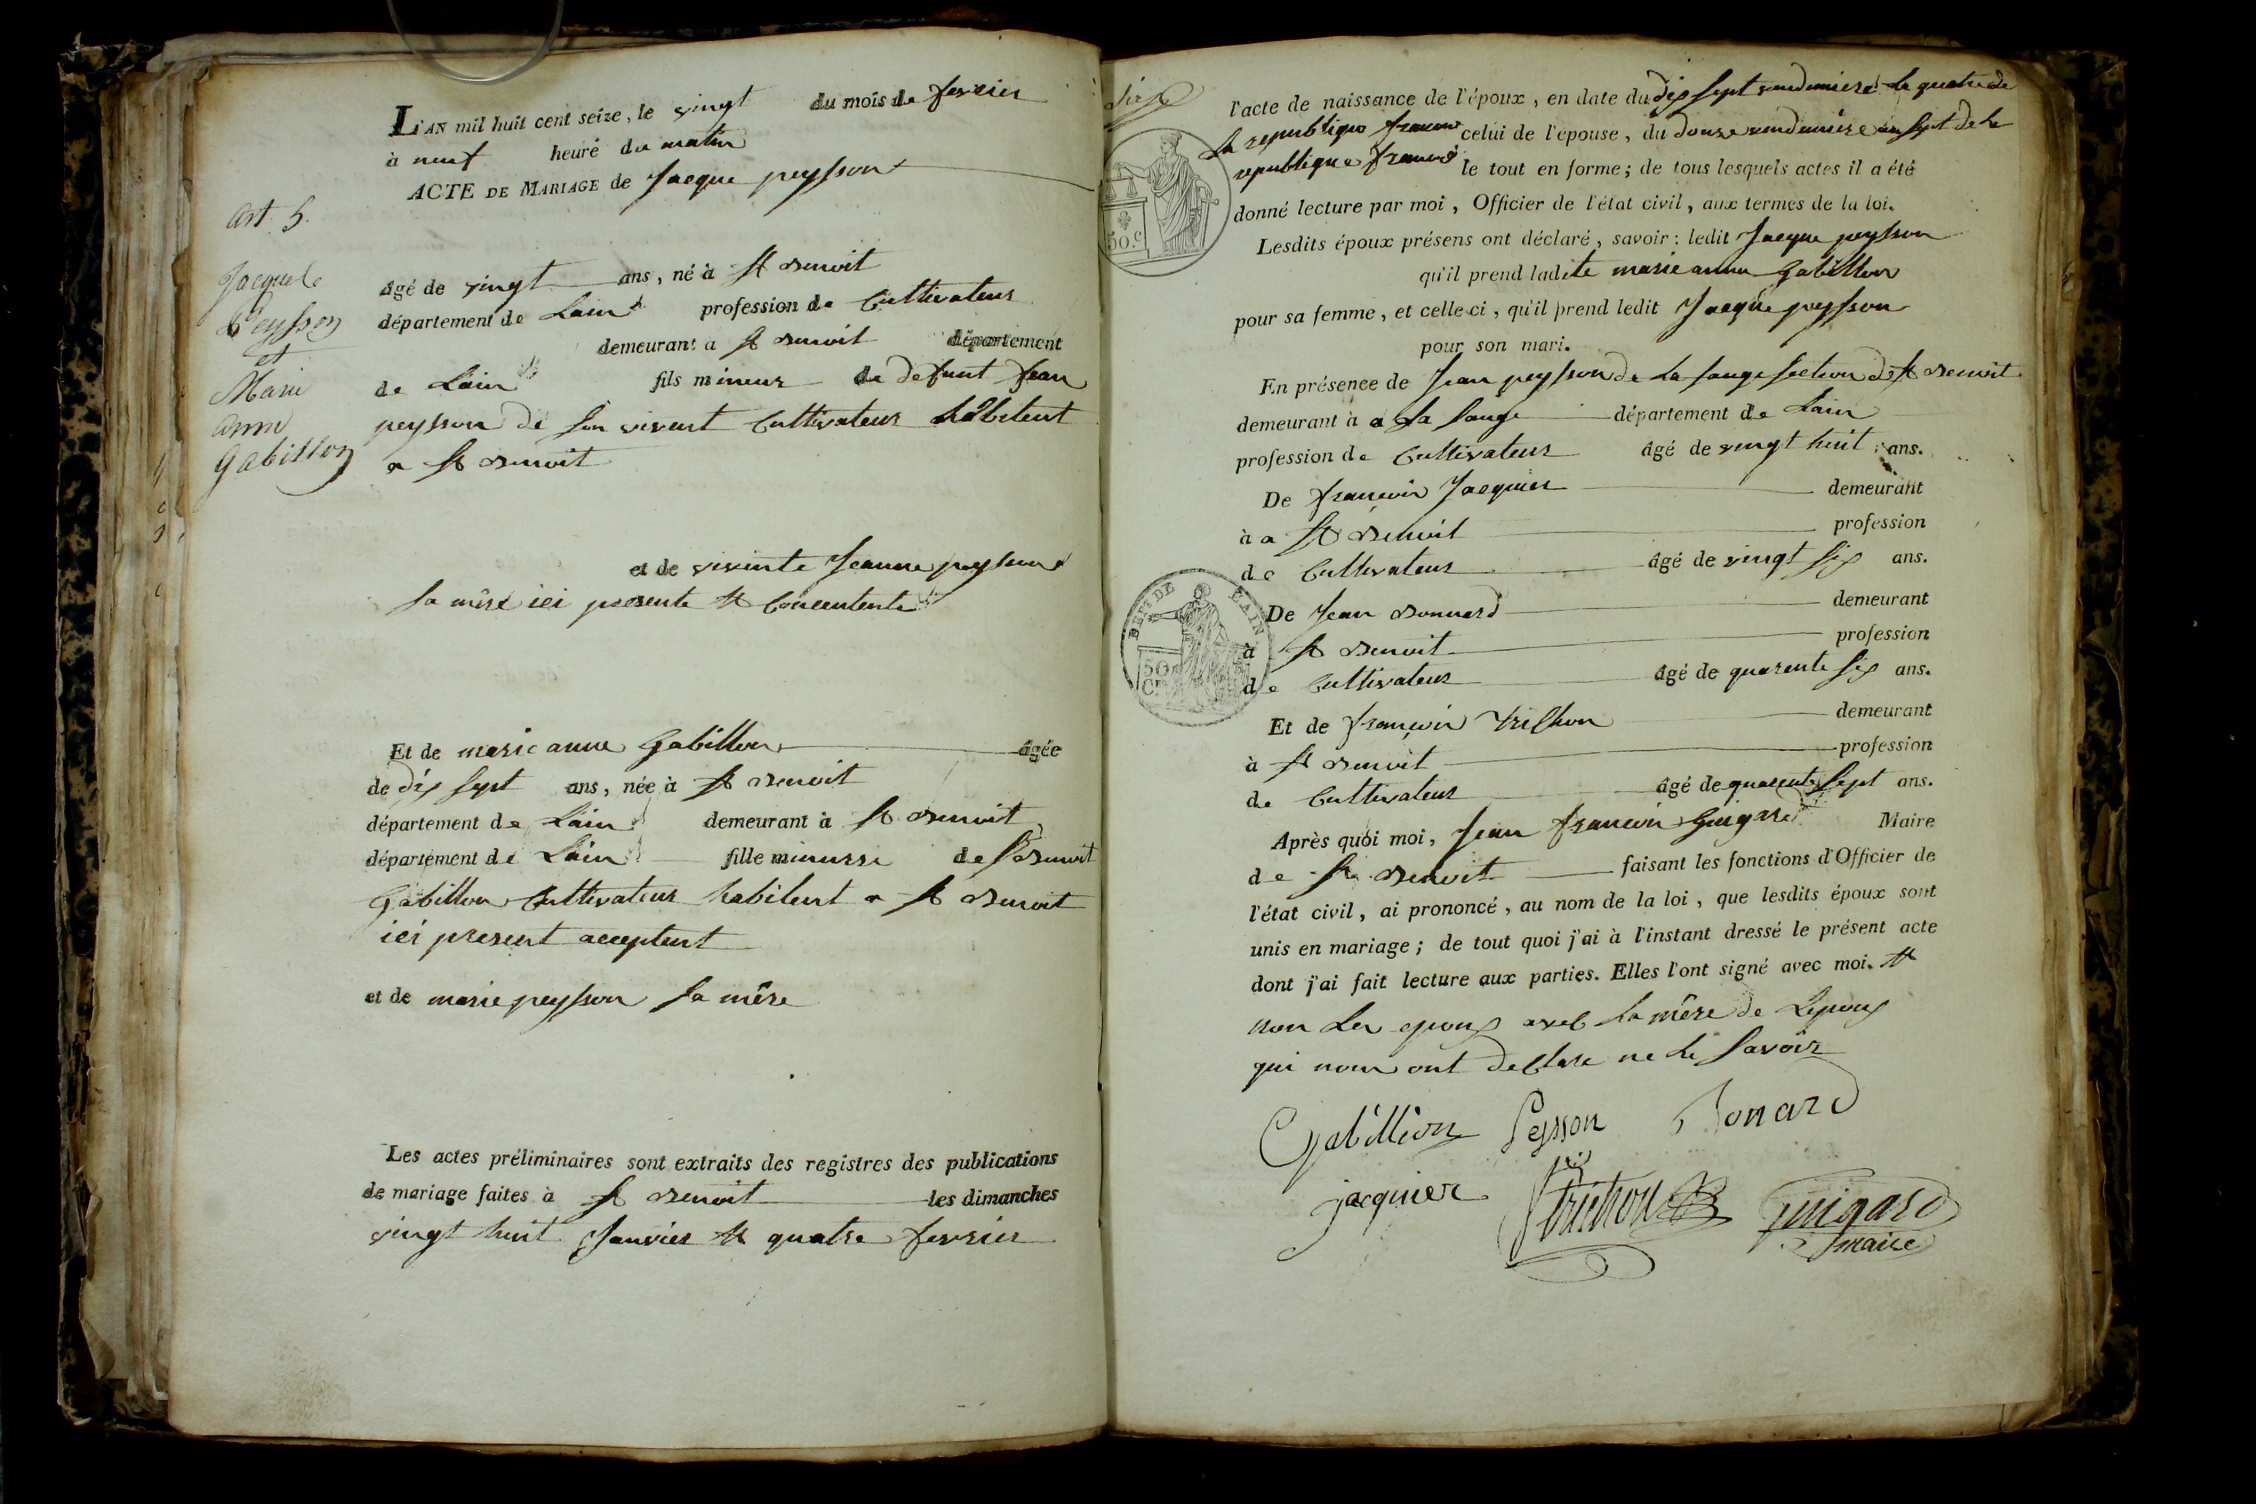 L'AN mil huit cent seize, le vingt du mois de fevrier
à neuf heure du matin
ACTE DE MARIAGE de Jacque peysson
art. 5.
Jacque
Peysson
et
Marie
anne
Gabillon
âgé de vingt ans, né à St Benoit
département de Lain profession de Cultivateur
demeurant a St Benoit département
de Lain fils mineur de defunt Jean
peysson de son vivent Cultivateur habitent
a St Benoit
et de vivente Jeanne peysson
sa mère ici presente et Concentente
Et de marie anne Gabillon âgée
de dix sept ans, née à St Benoit
département de Lain demeurant à St Benoit
département de Lain fille mineure de Benoit
Gabillon Cultivateur habitent a St Benoit
ici present acceptent
et de marie peysson sa mère
Les actes préliminaires sont extraits des registres des publications
de mariage faites à St Benoit les dimanches
vingt huit Janvier et quatre fevrier
l'acte de naissance de l'époux, en date du dix sept vendemiere la quatre de
la republique celui de l'épouse, du douze vendemiere an sept de la
republique le tout en forme; de tous lesquels actes il a été
donné lecture par moi, Officier de l'état civil, aux termes de la loi.
50.c
Lesdits époux présens ont déclaré, savoir: ledit Jacque peysson
qu'il prend ladite marie anne Gabillon
pour sa femme, et celle-ci, qu'il prend ledit Jacque peysson
pour son mari.
En présence de Jean peysson de la sauge section de St Benoit
demeurant à a La Sauge département de Lain
profession de Cultivateur âgé de vingt huit ans.
De françois Jacquier demeurant
à a St Benoit profession
de Cultivateur âgé de vingt six ans.
DEPt. DE L'AIN
50
De Jean Bonnard demeurant
à St Benoit profession
de Cultivateur âgé de quarente six ans.
Et de françois trichon demeurant
à St Benoit profession
de Cultivateur âgé de quarente sept ans.
Après quoi moi, Jean françois Guigard Maire
de St Benoit faisant les fonctions d'Officier de
l'état civil, ai prononcé, au nom de la loi, que lesdits époux sont
unis en mariage; de tout quoi j'ai à l'instant dressé le présent acte
dont j'ai fait lecture aux parties. Elles l'ont signé avec moi. et
non les epoux avec la mère de Lepoux
qui nous ont declare ne le savoir
Gabillion Peysson Bonard
jacquier trichon guigard
maire